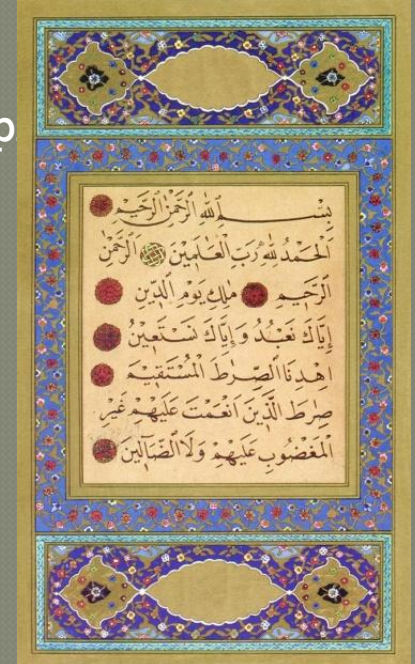 بِسْــــمِ اللهِ الرَّحْمٰنِ الرَّحِيمِ
اَلْحَمْدُ لِلّٰهِ رَبِّ الْعَالَمِينَ الرَّحْمٰنِ
الرَّحِيمِ مٰلِكِ يَوْمِ الدِّينِ
اِيَّاكَ نَعْبُدُ وَاِيَّاكَ نَسْتَعِينُ
اِهْدِنَا الصِّرٰطَ الْمُسْتَقِيمَ
صِرٰطَ الَّذِينَ اَنْعَمْتَ عَلَيْهِمْ غَيْرِ
الْمَغْضُوبِ عَلَيْهِمْ وَلَا الضَّالِّينَ